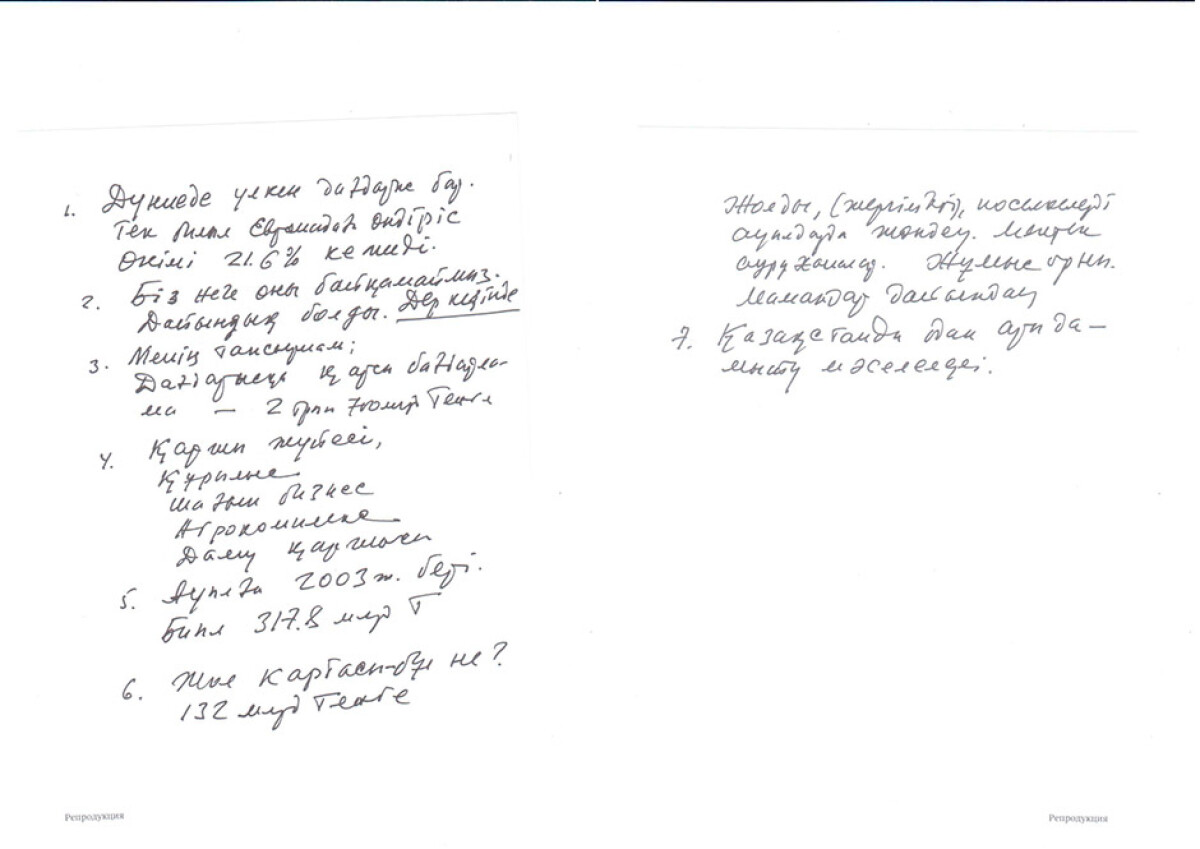 1. Дүниеде үлкен дағдарыс бар.
Тек биыл Европада өндіріс
өкімі 21.6% кеміді.
2. Біз неге оны байқамаймыз.
Дайындық болды. Дер кезінде
3. Менің тапсырмам;
Дағдарысқа қарсы бағдарла-
ма — 2 трлн 700 млрд Теңге
4. Қаржы жүйесі,
Құрылыс
шағын бизнес
Агрокомплекс
Даму қаржысы
5. Ауылға 2003 ж. бері.
Биыл 317.8 млрд Т
6. Жол картасы-бұл не?
132 млрд Теңге
Репродукция
Жолды, (жергілікті), поселкелерді
ауылдарда жөндеу. Мектеп
ауруханалар. Жұмыс орны.
Мамандар дайындау
7. Қазақстанды одан ары да-
мыту мәселелері.
Репродукция